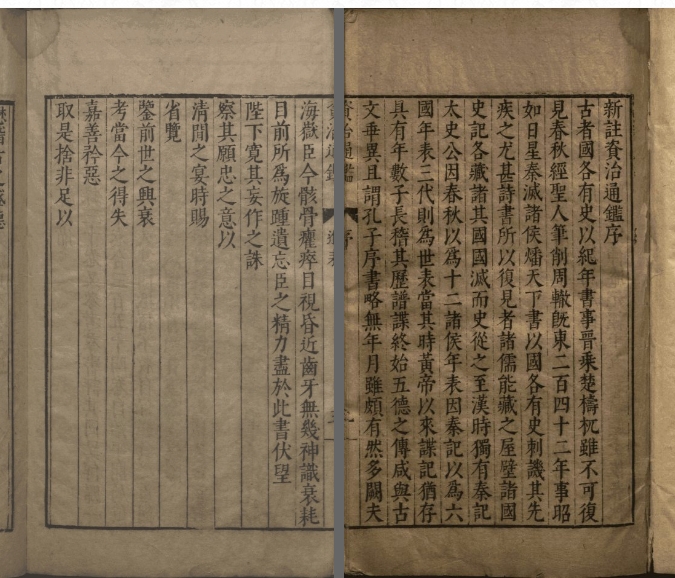 新註資治通鑑序
古者國各有史以紀年書事晉乘楚檮杌雖不可復
見春秋經聖人筆削周轍旣東二百四十二年事昭
如日星秦滅諸侯燔天下書以國各有史刺譏其先
疾之尤甚詩書所以復見者諸儒能藏之屋壁諸國
史記各藏諸其國國滅而史從之至漢時獨有秦記
太史公因春秋以爲十二諸侯年表因秦記以爲六
國年表三代則爲世表當其時黃帝以來諜記猶存
具有年數子長稽其歷譜諜終始五德之傳咸與古
文乖異且謂孔子序書略無年月雖頗有然多闕夫
資治通鑑 序
海嶽臣今骸骨癯瘁目視昏近齒牙無幾神識衰耗
目前所爲旋踵遺忘臣之精力盡於此書伏望
陛下寬其妄作之誅
察其願忠之意以
清閒之宴時賜
省覽
鑒前世之興衰
考當今之得失
嘉善矜惡
取是捨非足以